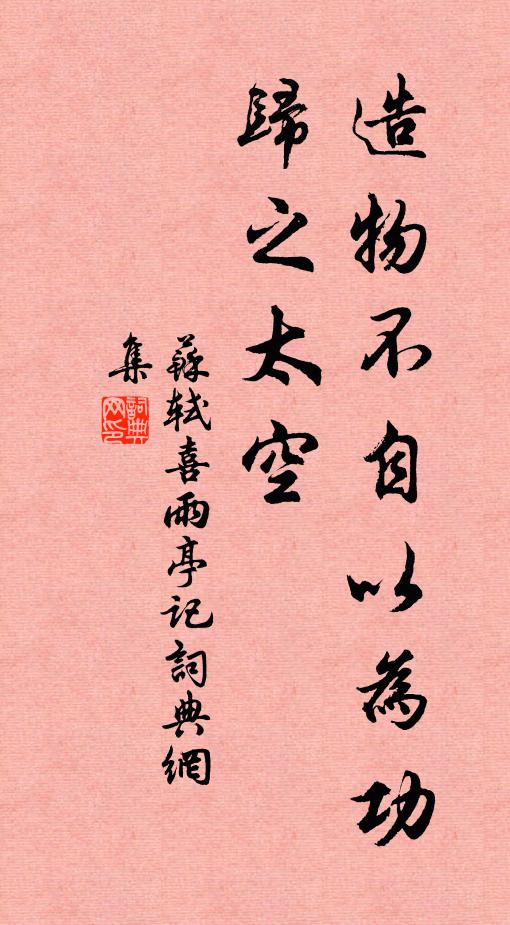 造物不自以為功
歸之太空
蘇軾喜雨亭記詞典網
集
詞典网印